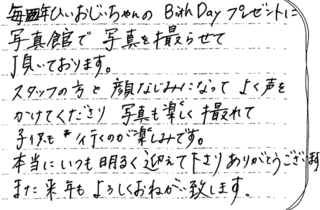 毎年ひいおじいちゃんの Birth Day プレゼントに
写真館で 写真を撮らせて
頂いております。
スタッフの方と顔なじみになって よく声を
かけてくださり 写真も楽しく撮れて
子供も行くのが楽しみです。
本当にいつも明るく迎えて下さりありがとうございます
また来年もよろしくおねがい致します。